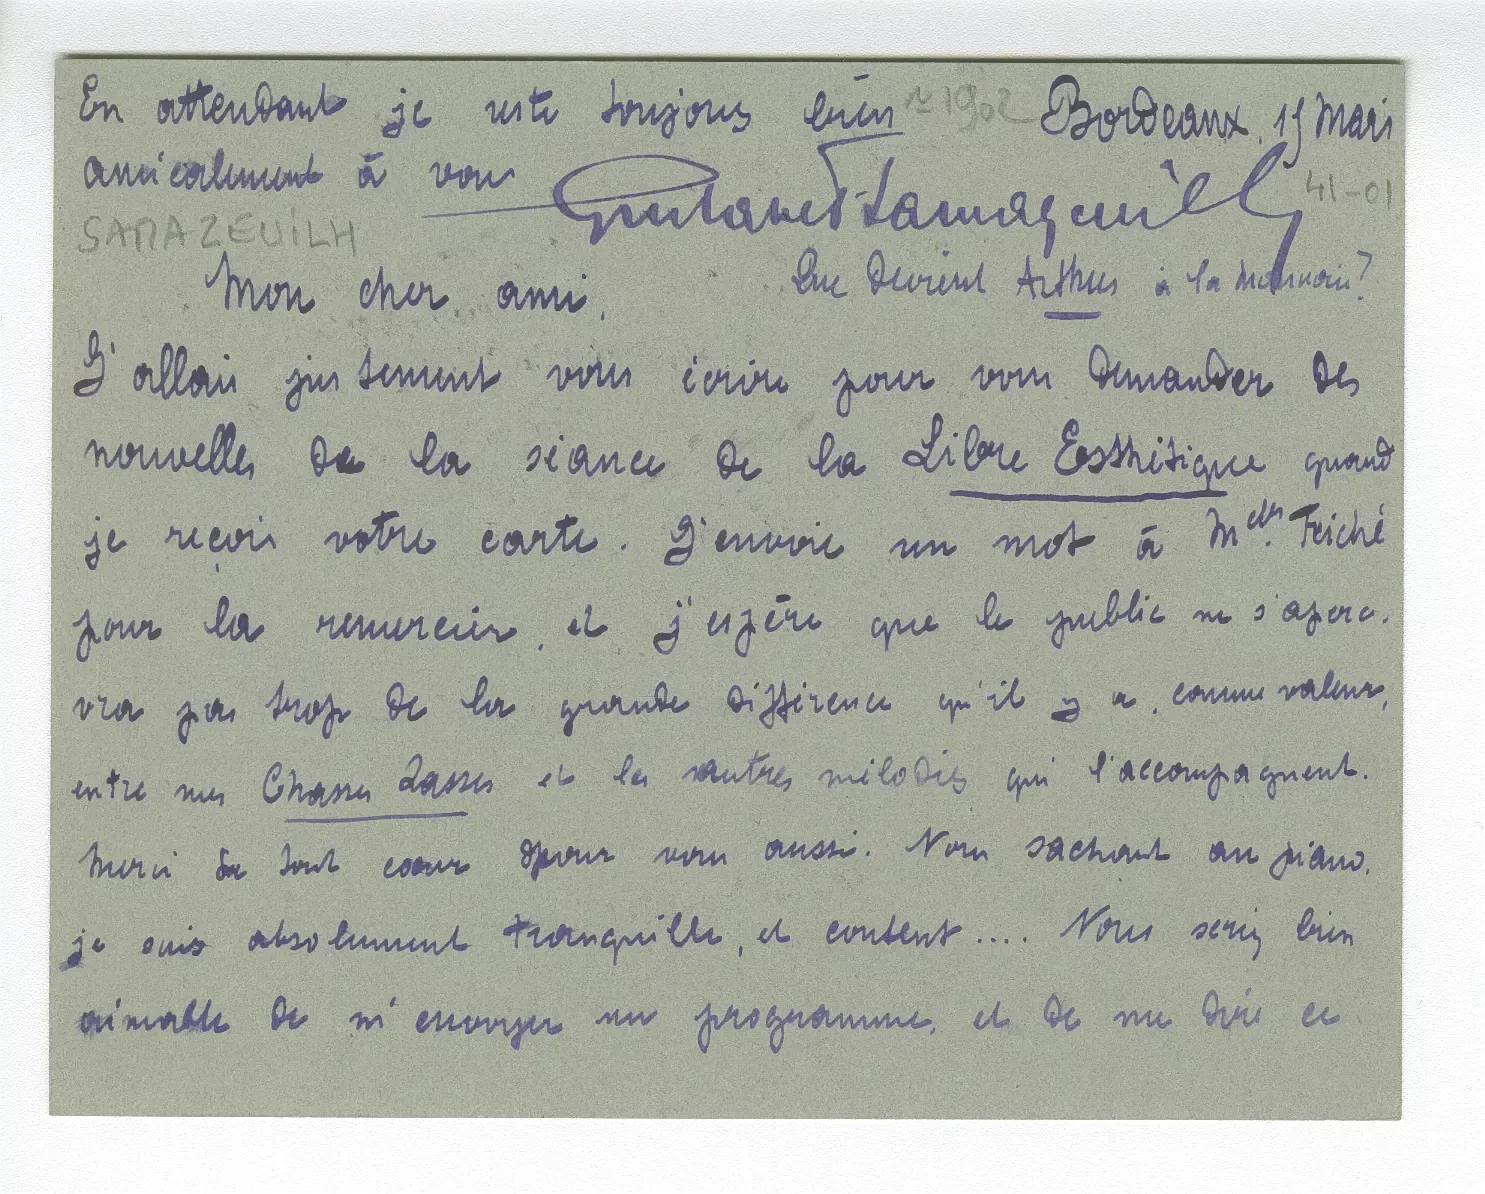 En attendant je reste toujours bien ~ 1902 Bordeaux, 15 Mars
amicalement à vous Gustave Samazeuilh 41-01
SAMAZEUILH
Mon cher ami, Que devient Arthus à la monnaie?
J'allais justement vous écrire pour vous demander des
nouvelles de la séance de la Libre Esthétique quand
je reçois votre carte. J'envoie un mot à Melle. Friché
pour la remercier, et j'espère que le public ne s'aperce-
vra pas trop de la grande différence qu'il y a, comme valeur,
entre mes Chasses Lasses et les autres mélodies qui l'accompagnent.
Merci de tout cœur pour vous aussi. Vous sachant au piano,
je suis absolument tranquille, et content.... Vous seriez bien
aimable de m'envoyer un programme, et de me dire ce